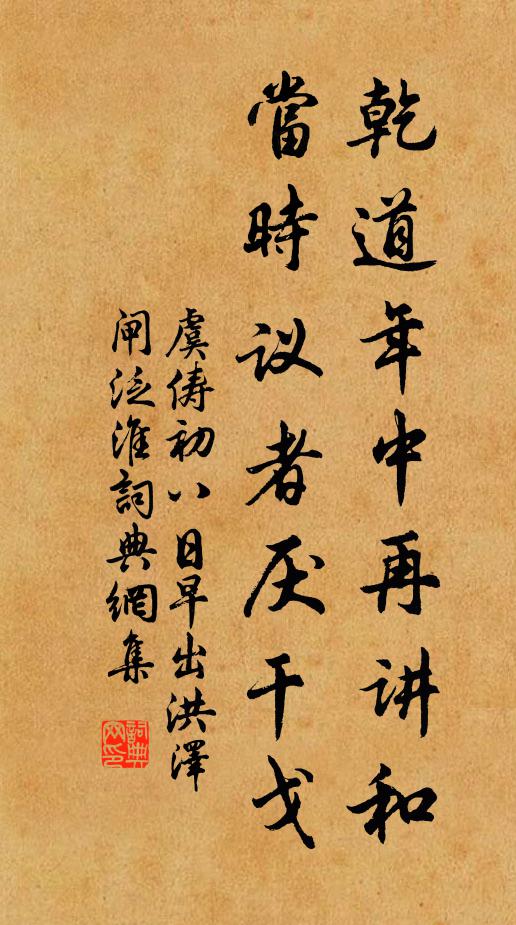 乾道年中再讲和
當時议者厌干戈
虞儔初八日早出洪澤
闸泛淮詞典網集
詞典网印